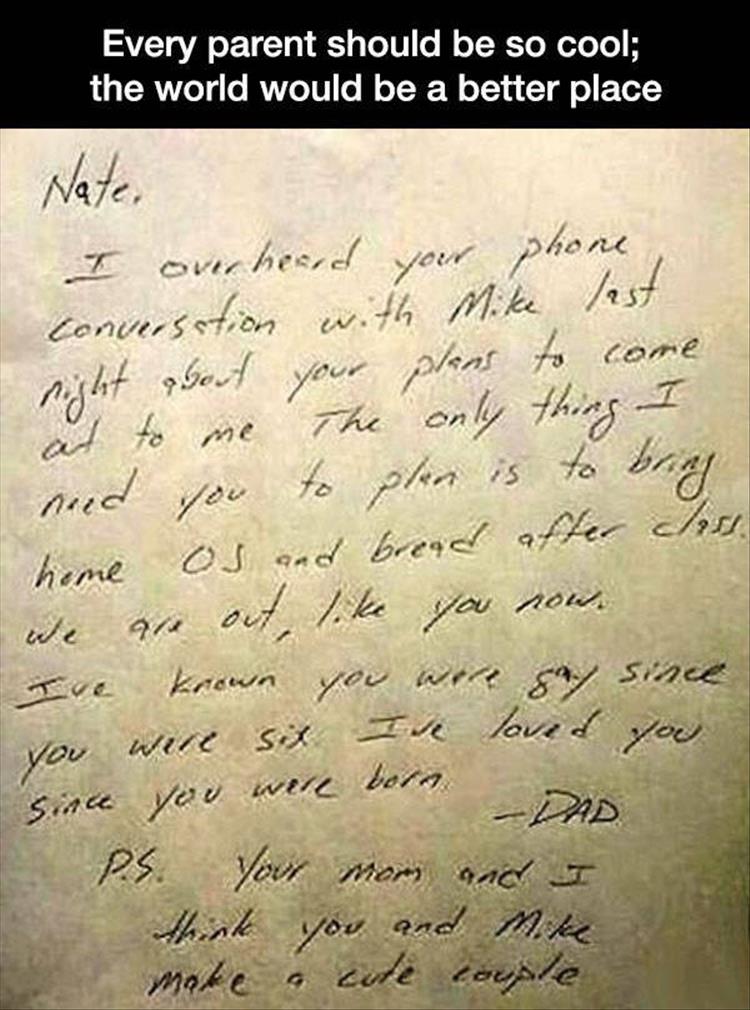 Every parent should be so cool;
the world would be a better place
Nate,
I overheard your phone
conversation with Mike last
night about your plans to come
out to me The only thing I
need you to plan is to bring
home OJ and bread after class.
We are out, like you now.
I've known you were gay since
you were six I've loved you
since you were born.
-DAD
P.S. Your mom and I
think you and Mike
make a cute couple